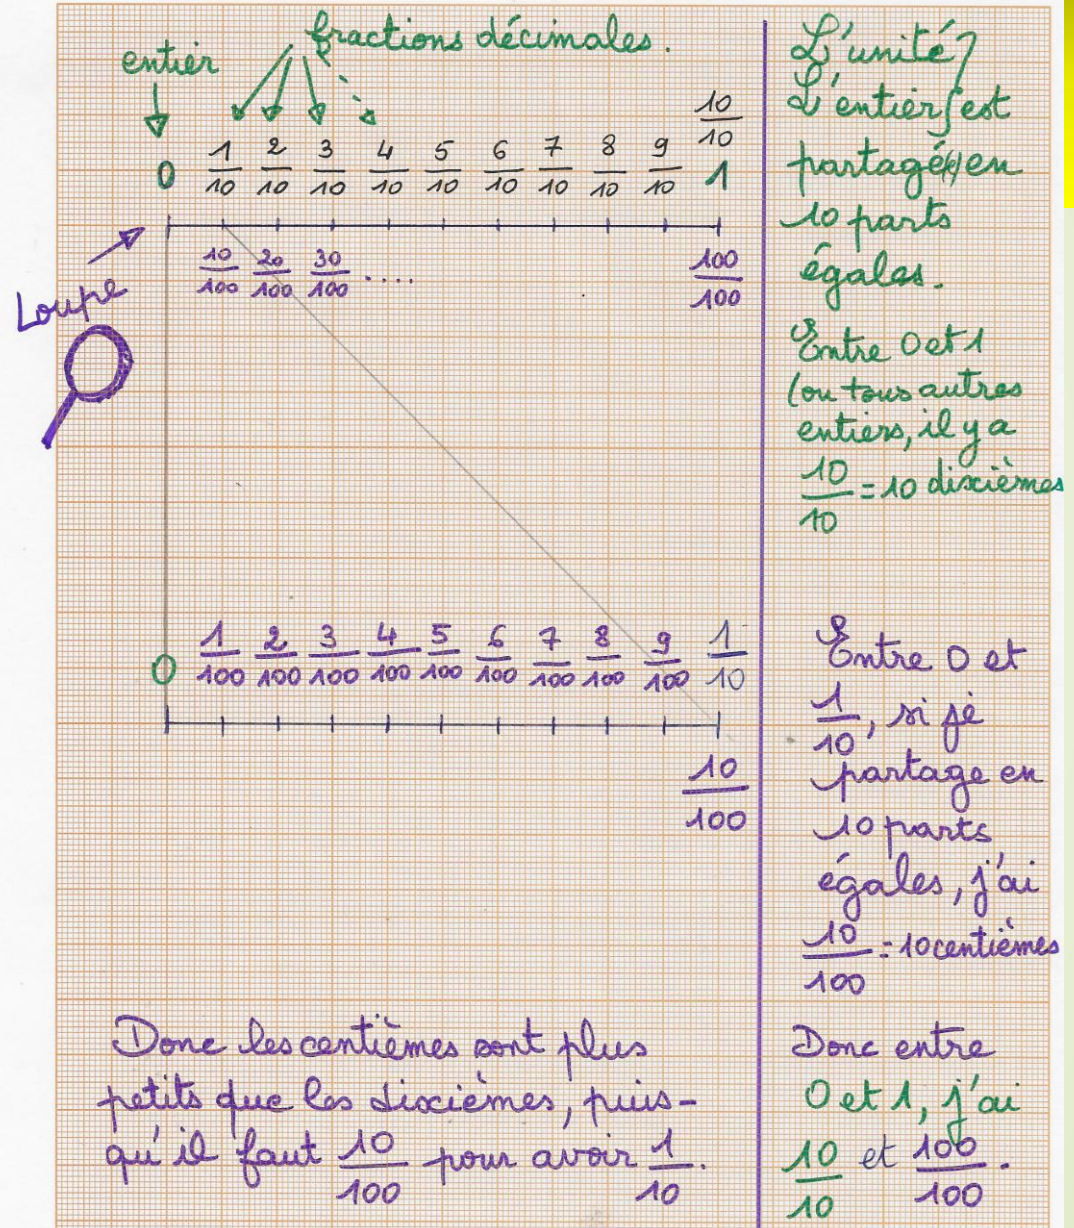 fractions décimales.
entier
10/10
0 1/10 2/10 3/10 4/10 5/10 6/10 7/10 8/10 9/10 1
10/100 20/100 30/100 .... 100/100
Loupe
0 1/100 2/100 3/100 4/100 5/100 6/100 7/100 8/100 9/100 1/10
10/100
Donc les centièmes sont plus
petits que les dixièmes, puis-
qu'il faut 10/100 pour avoir 1/10.
L'unité
L'entier est
partagé(e) en
10 parts
égales.
Entre 0 et 1
(ou tous autres
entiers, il y a
10/10 = 10 dixièmes
Entre 0 et
1/10, si je
partage en
10 parts
égales, j'ai
10/100 = 10 centièmes
Donc entre
0 et 1, j'ai
10/10 et 100/100.